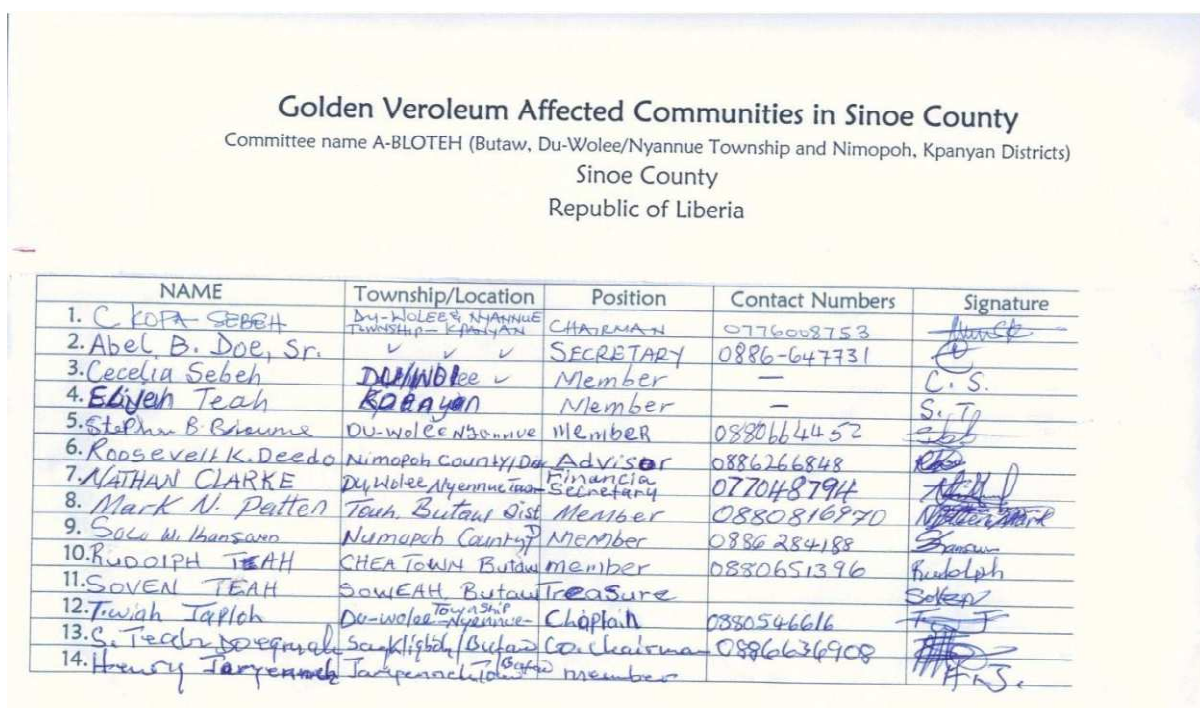 Golden Veroleum Affected Communities in Sinoe County
Committee name A-BLOTEH (Butaw, Du-Wolee/Nyannue Township and Nimopoh, Kpanyan Districts)
Sinoe County
Republic of Liberia
NAME Township/Location Position Contact Numbers Signature
1. C KOPA SEBEH DU-WOLEE & NYANNUE TOWNSHIP - KPANYAN CHAIRMAN 0776008753
2. Abel B. Doe, Sr. ✓ ✓ ✓ SECRETARY 0886-647731
3. Cecelia Sebeh DU/WOlee ✓ Member — C. S.
4. Teah KPANyan Member — S. T
5. Stephen B. DU-Wolee MembeR 0880664452
6. Roosevelt K. Deedo Nimopoh County/ Advisor 0886266848
7. NATHAN CLARKE Du Wolee Nyennue Financia Secretary 077048794
8. Mark N. Patten Butaw Dist Member 0880816970
9. W. County MEMBER 0886284188
10. RUDOLPH TEAH CHEA TOWN Butaw member 0880651396 Rudolph
11. SOVEN TEAH SOWEAH, Butaw Treasure Soven
12. Du-wolee Township Nyennue- Chaplain 0880546616
13. S. Teah /Butaw Co. Chairman 0886636908
14. Henry Butaw member